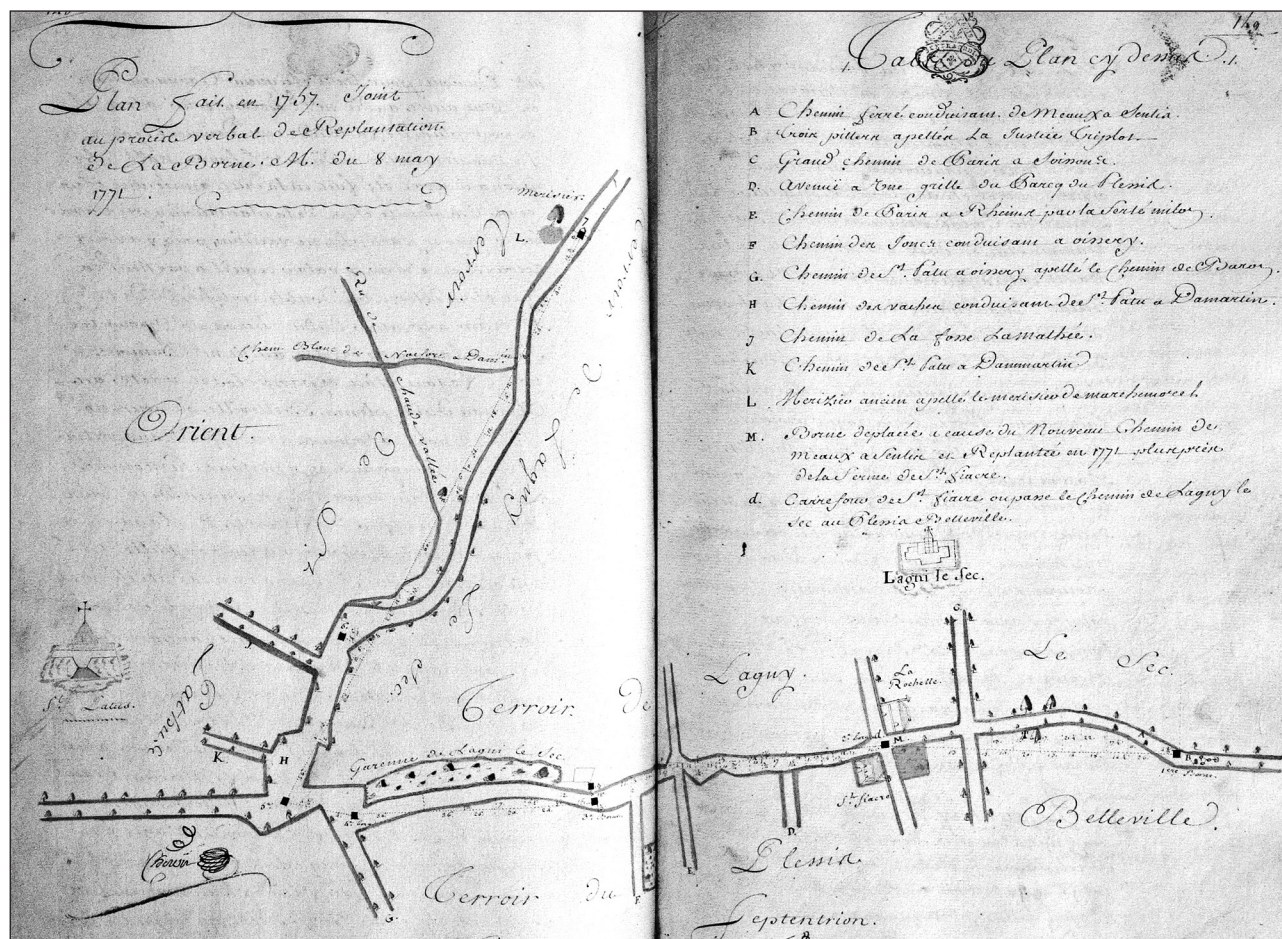 Plan fait en 1757. Joint
au procés verbal de Replantation
de La Borne. M. du 8 may
1771.
Merisier.
L.
J
Terroir
Terroir
De Lagny
Le Sec.
Ru de
chaude vallée
Chem Blanc de Nactou a Dam.in
Orient.
De
St
Pathus
St. Patus.
K.
H
Garenne de Lagni le Sec
Terroir de
Terroir du
G.
F.
149
Table du Plan cy devant
A Chemin ferré conduisant de Meaux a Senlis.
B Trois pilliers apellés La Justice Triplot.
C Grand chemin de Paris a Soissons.
D. Avenuë a une grille du Parcq du Plessis.
E Chemin de Paris a Rheims par la ferté milon.
F Chemin des Joncs conduisant a oissery.
G. Chemin de St. Patu a oissery apellé le Chemin de Baron.
H Chemin des vaches conduisant de St. Patu a Damartin.
J Chemin de La fosse Lamathée.
K Chemin de St. Patu a Dammartin
L Merizier ancien apellé le merisier de marchemorel
M. Borne deplacée a cause du Nouveau Chemin de
Meaux a Senlis et Replantée en 1771 plus près
de la ferme de St. fiacre.
d. Carrefour de St. fiacre ou passe le Chemin de Lagny le
sec au Plessis Belleville.
Lagni le Sec.
C.
Lagny.
Le Sec.
La Rochelle.
M
A
B
1ere Borne.
St. fiacre
D.
E.
Plessis
Belleville.
Septentrion.